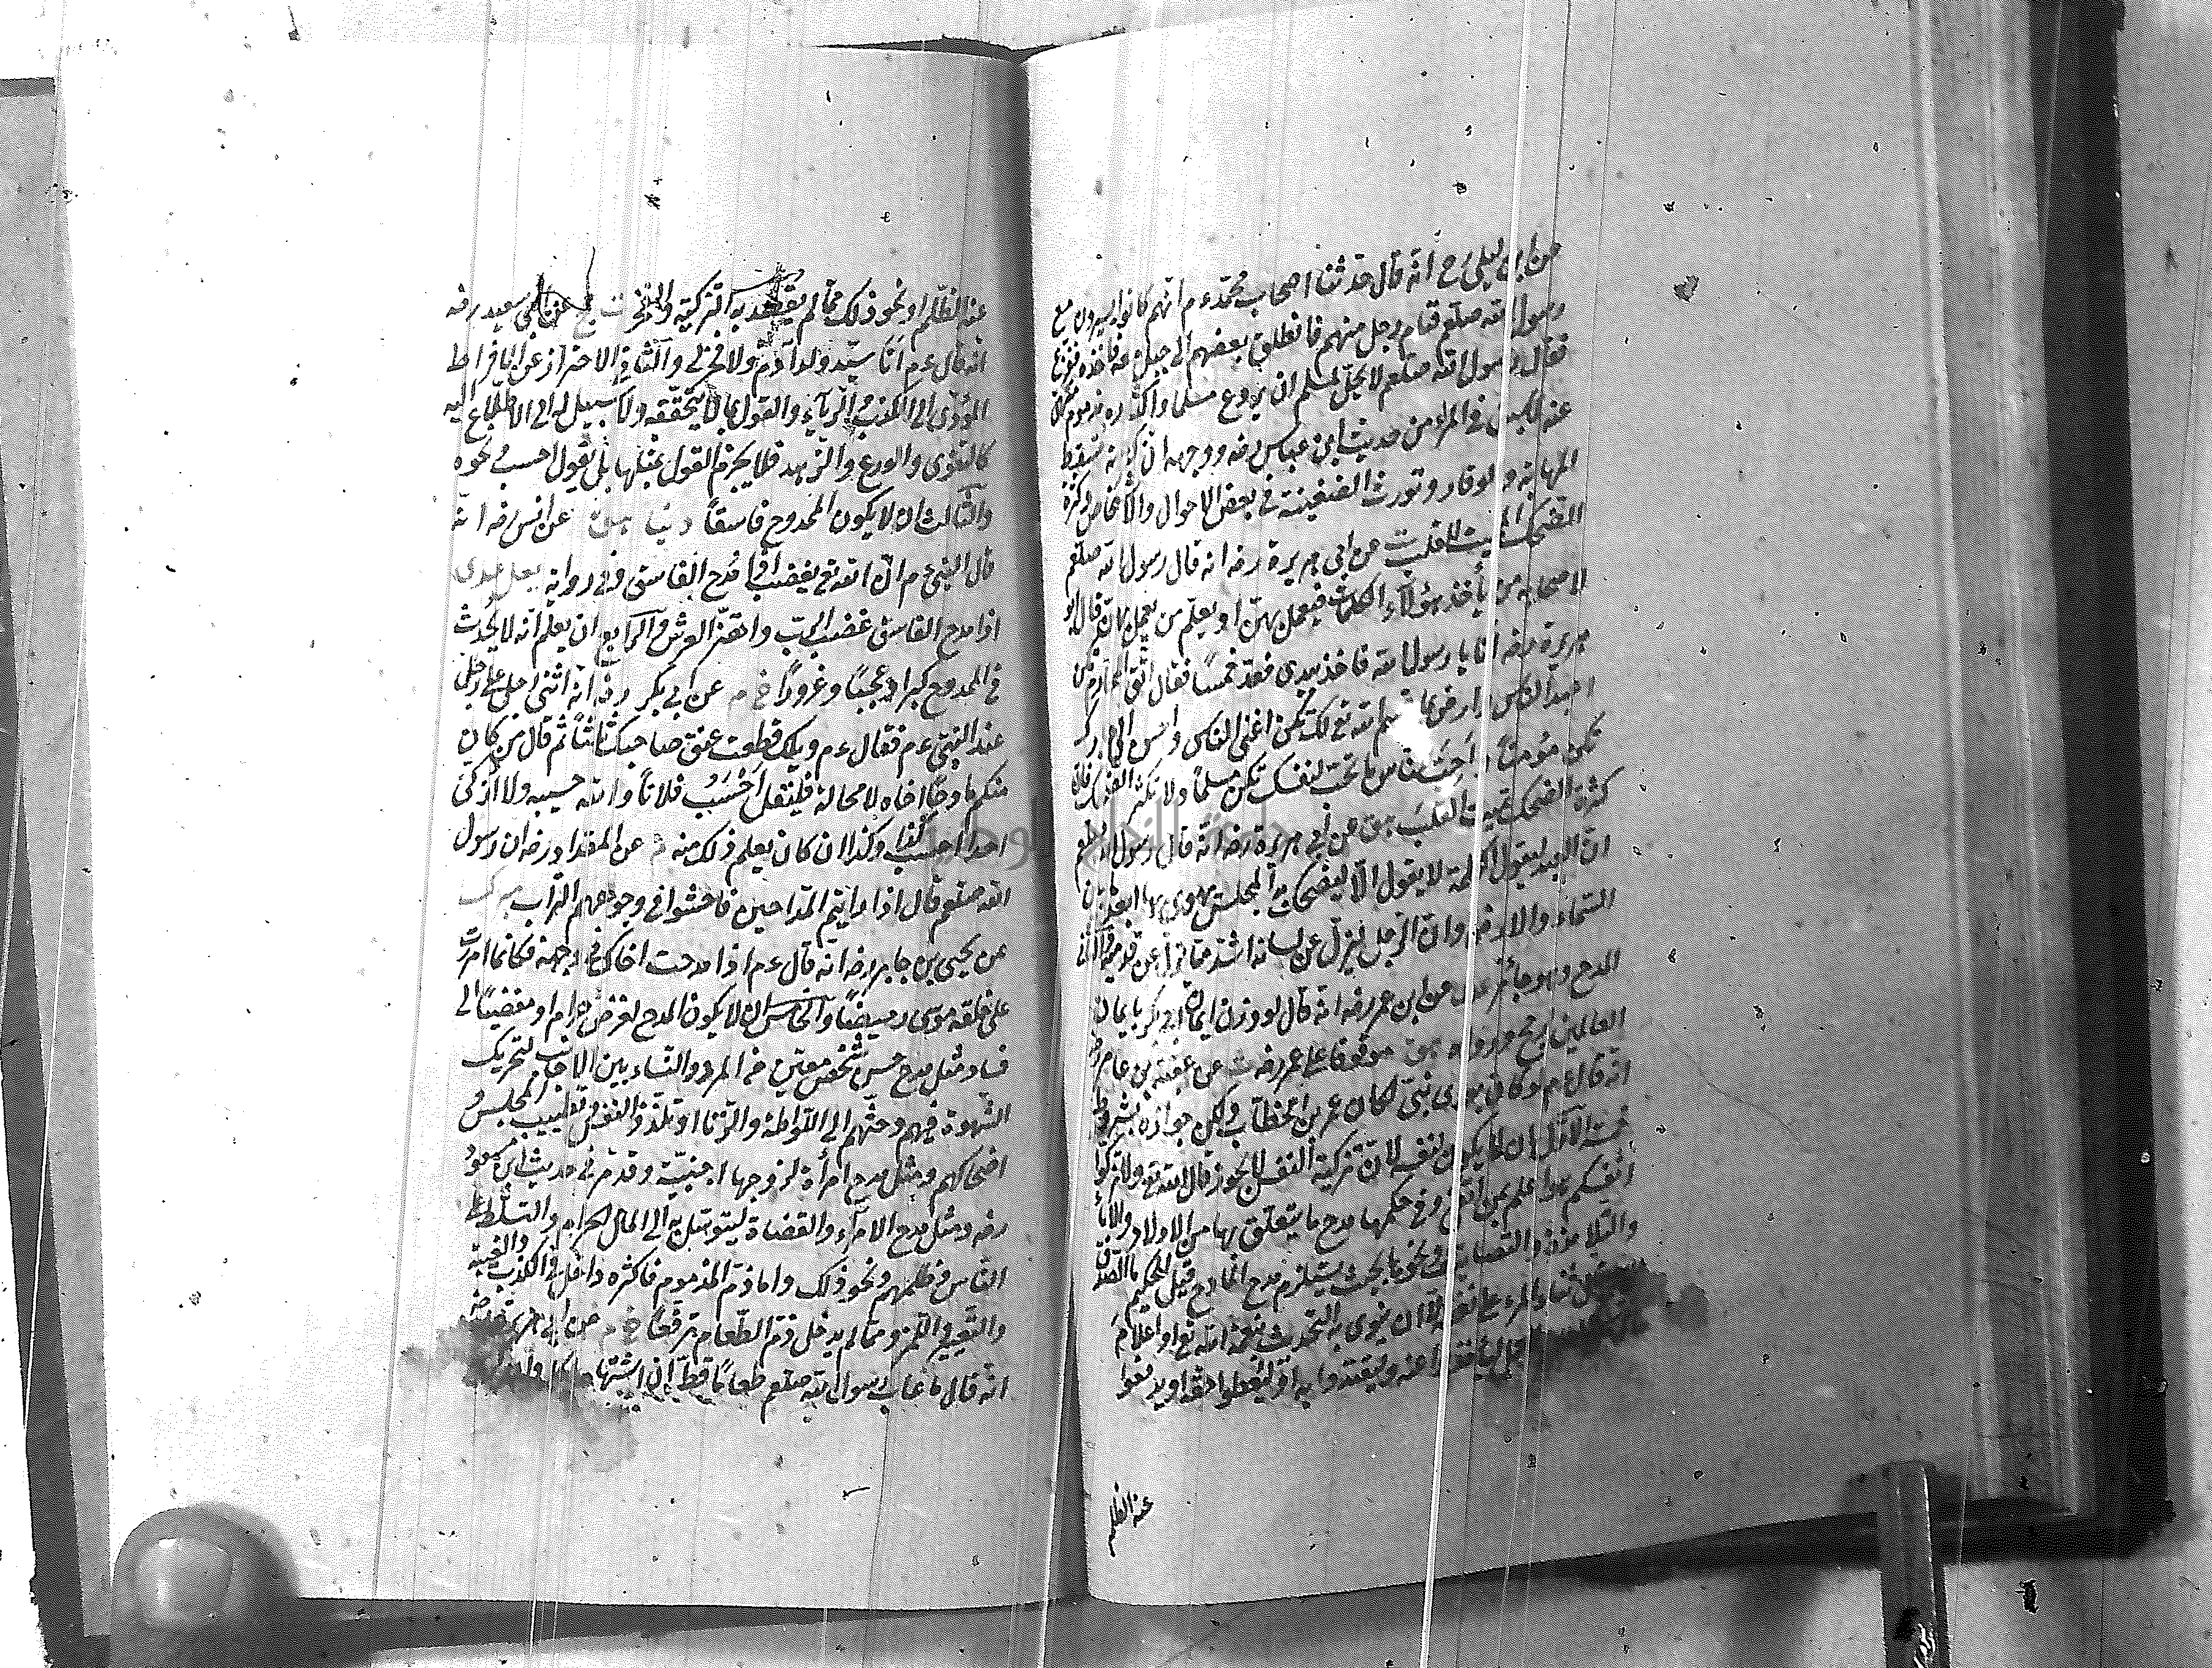 عن ابن ابي ليلى رح انه قال حدثنا اصحاب محمد عم انهم كانوا يسيرون مع
رسول الله صلعم فنام رجل منهم فانطلق بعضهم الى حبل معه فاخذه ففزع
فقال رسول الله صلعم لا يحل لمسلم ان يروع مسلما واكثاره مذموم منهى
عنه لما سبق في المراء من حديث ابن عباس رضه ووجهه ان كثرته تسقط
المهابة والوقار وتورث الضغينة في بعض الاحوال والاشخاص وكثرة
الضحك المميت للقلب ت عن ابى هريرة رضه انه قال رسول الله صلعم
لاصحابه من يأخذ هؤلآء الكلمات فيعمل بهن او يعلم من يعمل بهن قال ابو
هريرة رضه انا يا رسول الله فاخذ بيدى فعد خمسا فقال اتق المحارم تكن
اعبد الناس وارض بما قسم الله تع لك تكن اغنى الناس واحسن الى جارك
تكن مؤمنا واحب للناس ما تحب لنفسك تكن مسلما ولا تكثر الضحك فان
كثرة الضحك تميت القلب هق عن أبي هريرة رضه انه قال رسول الله صلعم
ان العبد ليقول الكلمة لا يقول الا ليضحك به المجلس يهوى بها ابعد من
السماء والارض وان الرجل ليزل عن لسانه اشد مما يزل عن قدميه الثاني
المدح وهو جائز عد عن ابن عمر رضه انه قال لو وزن ايمان ابي بكر بايمان
العالمين لرجح ورواه هق موقوفا على عمر رضه ت عن عقبة بن عامر رضه
انه قال عم لو كان بعدى نبي لكان عمر بن الخطاب ولكن جوازه بشروط
خمسة الاول ان لا يكون لنفسه لان تزكية النفس لا يجوز قال الله تع ولا تزكوا
انفسكم هو اعلم بمن اتقى وفي حكمها مدح ما يتعلق بها من الاولاد والاباء
والتلامذة والتصانيف ونحوها بحيث يستلزم مدح المادح قيل للحكيم ما الصدق
القبيح قال ثناء المرء على نفسه الا ان ينوى به التحدث بنعمة الله تع او اعلام
ليأخذوا عنه ويقتدوا به او ليعطوا حقه او يدفعوا
عنه الظلم
عنه الظلم او نحو ذلك مما لم يقصد به التزكية والفخر ت مج عن ابى سعيد رضه
انه قال عم انا سيد ولد آدم ولا فخر لى والثاني الاحتراز عن الافراط
المؤدى الى الكذب والريآء والقول بما لا يتحققه ولا سبيل له الى الاطلاع اليه
كالتقوى والورع والزهد فلا يجزم القول بمثلها بل يقول احسب ونحوه
والثالث ان لا يكون الممدوح فاسقا دنيا هق عن انس رضه انه
قال النبي عم ان الله تع يغضب اذا مدح الفاسق وفي رواية يعلى عدى
اذا مدح الفاسق غضب الرب واهتز العرش والرابع ان يعلم انه لا يحدث
في الممدوح كبرا او عجبا وغرورا خ م عن ابي بكر رضه انه اثنى رجل على رجل
عند النبي عم فقال عم ويلك قطعت عنق صاحبك ثلثا ثم قال من كان
منكم مادحا اخاه لا محالة فليقل احسب فلانا والله حسيبه ولا ازكى
احدا احسب كذا وكذا ان كان يعلم ذلك منه م عن المقداد رضه ان رسول
الله صلعم قال اذا رايتم المداحين فاحثوا في وجوههم التراب مبرك
عن يحيى بن جابر رضه انه قال عم اذا مدحت اخاك في وجهه فكانما امررت
على حلقه موسى رميضا والخامس ان لا يكون المدح لغرض حرام او مفضيا الى
فساد مثل مدح حسن شخص معين من المرد والنساء بين الاجانب لتحريك
الشهوة فيهم وحثهم الى اللواطة والزنا او تلذذ النفس وتطييب المجلس و
اضحاكهم ومثل مدح امرأة لزوجها اجنبية وقد مر في حديث ابن مسعود
رضه ومثل مدح الامرآء والقضاة ليتوسل به الى المال الحرام والتسلط على
الناس وظلمهم ونحو ذلك واما ذم المذموم فاكثره داخل في الكذب والغيبة
والتعيير واللمز ومما لم يدخل ذم الطعام ترفعا خ م عن ابي هريرة رضه
انه قال ما عاب رسول الله صلعم طعاما قط ان اشتهاه اكله وان